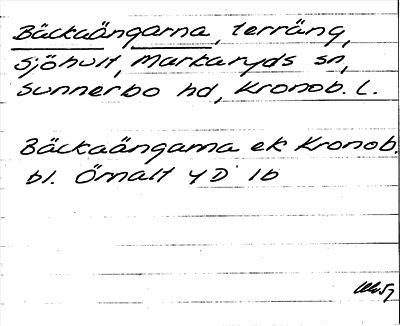 Bäckaängarna, terräng,
Sjöhult, Markaryds sn,
Sunnerbo hd, Kronob. l.
Bäckaängarna ek Kronob.
bl. Örnalt 4 D 1b